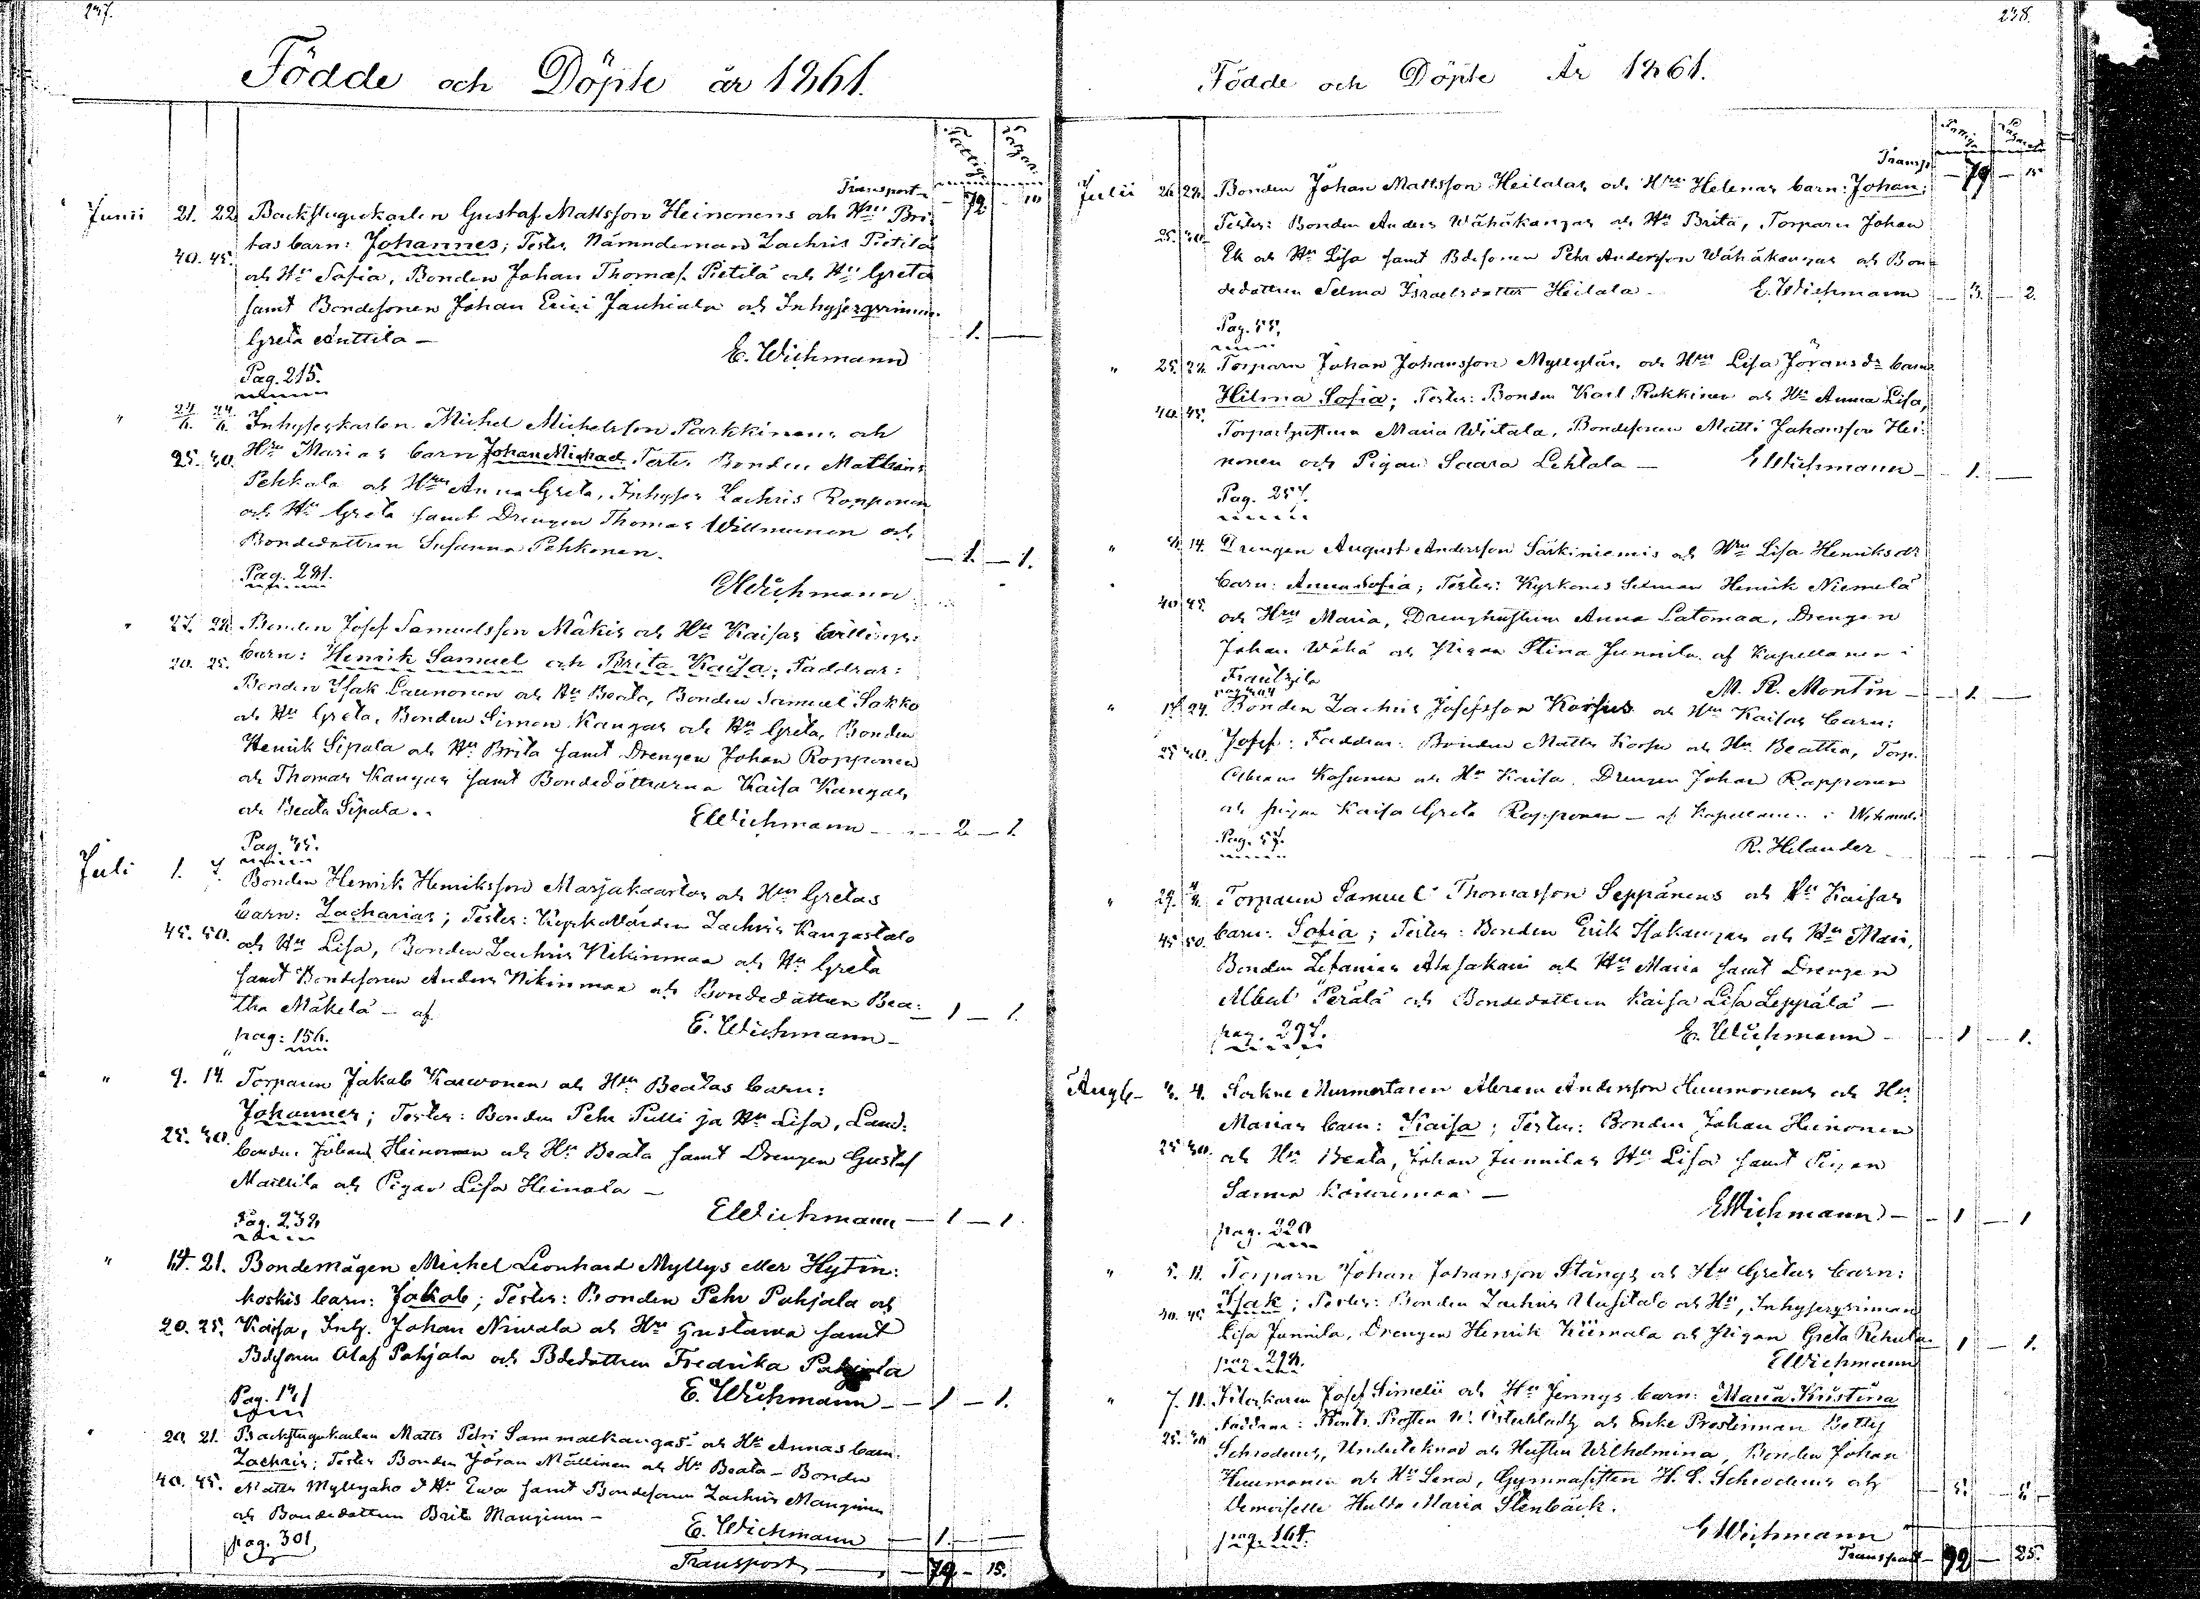 237.
Födde och Döpte år 1861.
Transport 72 10
Junii 21. 22. Backstugukarlen Gustaf Mattsson Heinonens och Hru Bri-
tas barn: Johannes; Test. Nämndeman Zachris Pietilä
40. 45. och Hu Sofia, Bonden Johan Thomæs. Pietilä och Hu Greta
samt Bondesonen Johan Erici Jauhiala och Inhysesqvinnan
Greta Anttila — 1.
E. Wichmann
Pag. 215.
" 24/6. 24/6. Inhyseskarlen Michel Michelsson Parkkinens och
Hru Marias barn Johan Michael Test. Bonden Mathias
25. 30. Pekkala och Hru Anna Greta, Inhyses Zachris Ropponen
och Hu Greta samt Drengen Thomas Willmunen och
Bondedottren Susanna Pehkonen. 1. 1.
Pag. 281.
E Wichmann
" 27. 28. Bonden Josef Samuelsson Mäkis och Hu Kaisas tvillings-
20. 25. barn: Henrik Samuel och Brita Kaisa; Faddrar:
Bonden Isak Launonen och Hu Beata, Bonden Samuel Sakko
och Hu Greta, Bonden Simon Kangas och Hu Greta, Bonden
Henrik Sipola och Hu Brita samt Drengen Johan Ropponen
och Thomas Kangas samt Bondedöttrarna Kaisa Kangas
och Beata Sipola.
E Wichmann 2 — 1
Pag. 35.
Juli 1. 7. Bonden Henrik Henriksson Marjakaartos och Hru Gretas
barn: Zacharias; Test.: Kyrkovärden Zachris Kangastalo
45. 50. och Hu Lisa, Bonden Zachris Nikinmaa och Hu Greta
samt Bondesonen Anders Nikinmaa och Bondedottren Bea-
tha Mäkelä — af 1 — 1.
pag: 156.
E. Wichmann
" 9. 14. Torparen Jakob Karvonen och Hru Beatas barn:
Johannes; Test.: Bonden Pehr Pulli ja Hu Lisa, Land-
25. 30. bonden Johan Heinonen och Hu Beata samt Drengen Gustaf
Mattila och Pigan Lisa Heinola —
E Wichmann — 1 — 1
Pag. 239.
" 14. 21. Bondemågen Michel Leonhard Myllys eller Hytin-
koskis barn: Jakob; Test.: Bonden Pehr Pohjala och
20. 25. Kaisa, Inh. Johan Niwala och Hru Gustawa samt
Bdesonen Olaf Pohjala och Bdedottren Fredrika Pohjola
Pag. 141
E. Wichmann — 1 — 1.
20. 21. Backstugukarlen Matts Petri Sammalkangas och Hu Annas barn.
Zachris; Test. Bonden Jöran Mällinen och Hu Beata — Bonden
40. 45. Matts Myllyaho & Hu Ewa samt Bondesonen Zachris Manginen
och Bondedottren Brita Manginen —
pag. 301
E. Wichmann 1.
Transport 79 15.
238.
Födde och Döpte År 1861.
Transp. 79 15
Julii 26. 28. Bonden Johan Mattsson Heilalas och Hru Helenas barn: Johan;
25. 30. Test.: Bonden Anders Wähäkangas och Hu Brita, Torparn Johan
Ek och Hu Lisa samt Bdesonen Pehr Andersson Wähäkangas och Bon-
dedottren Selma Israelsdotter Heilala — E. Wichmann 3. 2.
Pag. 55.
" 25. 28. Torparn Johan Johansson Myllylä, och Hru Lisa Jöransdr barn
Hilma Sofia; Test.: Bonden Karl Rukkinen och Hu Anna Lisa,
40. 45. Torparhustrun Maria Wiitala, Bondesonen Matti Johansson Hei-
nonen och Pigan Saara Lehtola — E Wichmann — 1.
Pag. 257.
" 14. Drengen August Andersson Särkiniemis och Hru Lisa Henriksdr
barn: Anna Sofia; Test.: Kyrkones Sexman Henrik Niemelä
40 45. och Hru Maria, Drenghustrun Anna Latomaa, Drengen
Johan Wähä och Pigan Stina Junnila. af Kapellanen i
Frantzila
M. R. Montin — 1.
" 24. Bonden Zachris Josefsson Korsus och Hru Kaisas barn:
25 30. Josef: Faddrar: Bonden Matts Korsu och Hu Beatha, Torp.
Abram Kosunen och Hu Kaisa. Drengen Johan Ropponen
och pigan Kaisa Greta Ropponen — af Kapellanen i
Pag. 57.
R. Helander
" 29. Torparen Samuel Thomasson Seppänens och Hu Kaisas
45 50. barn: Sofia; Test.: Bonden Erik Isokangas och Hu Mari,
Bonden Zefanias Alasakari och Hu Maria samt Drengen
Albert Perälä och Bondedottren Kaisa Lisa Leppälä —
pag. 297.
E. Wichmann 1 1.
Aug 4. Sockne Murmestaren Abram Andersson Huumonens och Hu
Marias barn: Kaisa; Test.: Bonden Johan Heinonen
25 30. och Hu Beata, Johan Junnilas Hu Lisa samt Pigan
Sanna —
E Wichmann — 1 1
pag. 320
" 5. 11. Torparn Johan Johansson Stångs och Hu Gretas barn:
40. 45 Isak; Test.: Bonden Zachris Uusitalo och Hu, Inhysesqvinnan
Lisa Junnila, Drengen Henrik Kiimala och Pigan Greta Rehula 1 1.
pag. 298.
E Wichmann
" 7. 11. Josef Simelii och Hu Jennys barn: Maria Kristina
Faddrar: Kontr. Prosten W. Österbladh och Enke Prostinnan Betty
25. 30 Schroderus, Undertecknad och Hustru Wilhelmina, Bonden Johan
Huumonen och Hu Lena, Gymnasisten H. E. Schroderus och
Demoiselle Hulda Maria Stenbäck.
pag. 164.
E Wichmann
Transport 92 25.